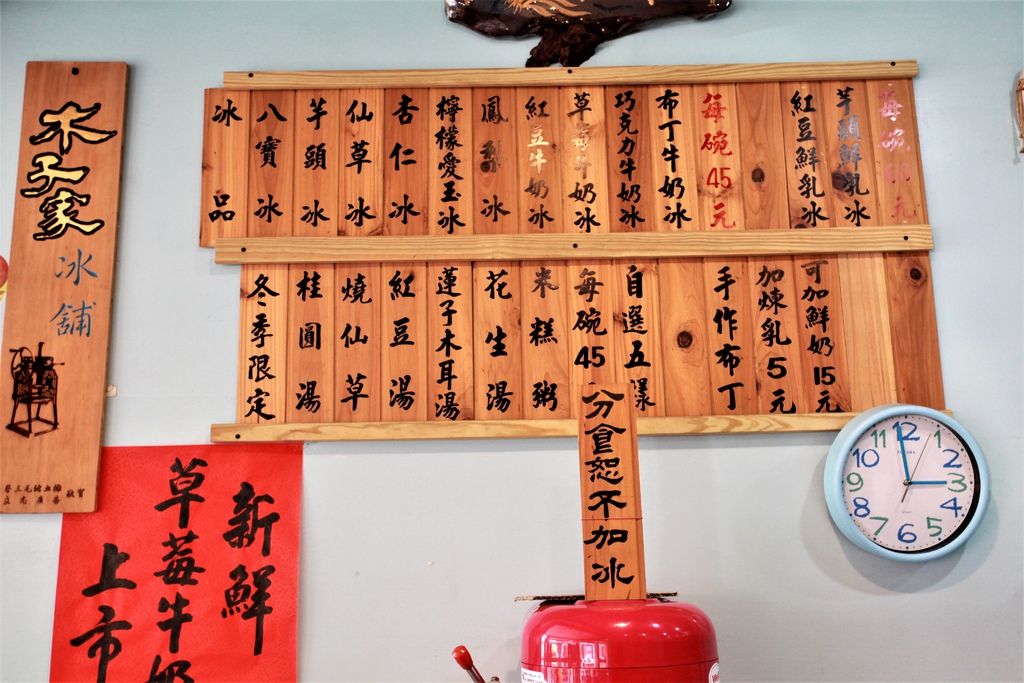 木子家
冰舖
冰品
八寶冰
芋頭冰
仙草冰
杏仁冰
檸檬愛玉冰
鳳梨冰
紅豆牛奶冰
草莓牛奶冰
巧克力牛奶冰
布丁牛奶冰
每碗45元
紅豆鮮乳冰
芋頭鮮乳冰
每碗元
冬季限定
桂圓湯
燒仙草
紅豆湯
蓮子木耳湯
花生湯
米糕粥
每碗45
自選五樣
手作布丁
加煉乳5元
可加鮮奶15元
分食恕不加冰
新鮮
草莓牛奶
上市
12
1
2
3
4
5
6
7
8
9
10
11